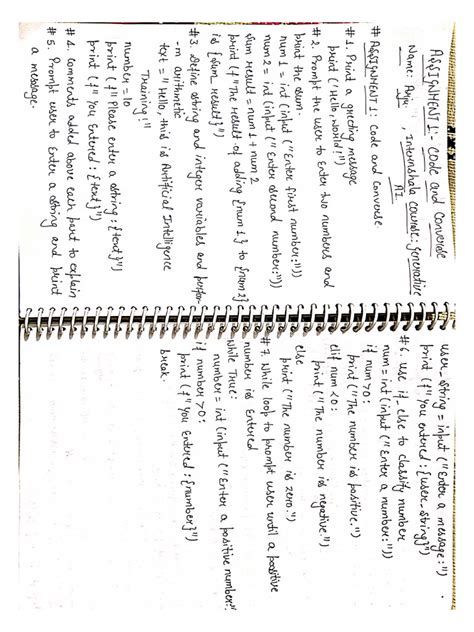 ASSIGNMENT 1: Code and Converse
Name: Anju, Internshala course: Generative
AI
# ASSIGNMENT 1: Code and Converse
# 1. Print a greeting message
print ('Hello, World!')
# 2. Prompt the user to Enter two numbers and
print the sum.
num 1 = int (input ("Enter first number:"))
num 2 = int (input ("Enter second number:"))
Sum result = num 1 + num 2
print (f "The result of adding {num 1} to {num 2}
is {sum result}")
# 3. Define string and integer variables and perfor-
-m arithmetic
text = "Hello, this is Artificial Intelligence
Training!"
number = 10
print (f" Please enter a string: {text}")
print (f" You Entered: {text}")
# 4. Comments added above each part to explain
# 5. Prompt user to Enter a string and print
a message.
user_string = input ("Enter a message:")
print (f"You entered: {user_string}")
#6. Use if_else to classify number
num = int (input ("Enter a number:"))
if num >0:
print ("The number is positive.")
elif num <0:
print ("The number is negative.")
else
print ("The number is zero.")
#7. While loop to prompt user until a positive
number is Entered
While True:
number = int (input ("Enter a positive number:
if number >0:
print (f" You Entered: {number}")
break.